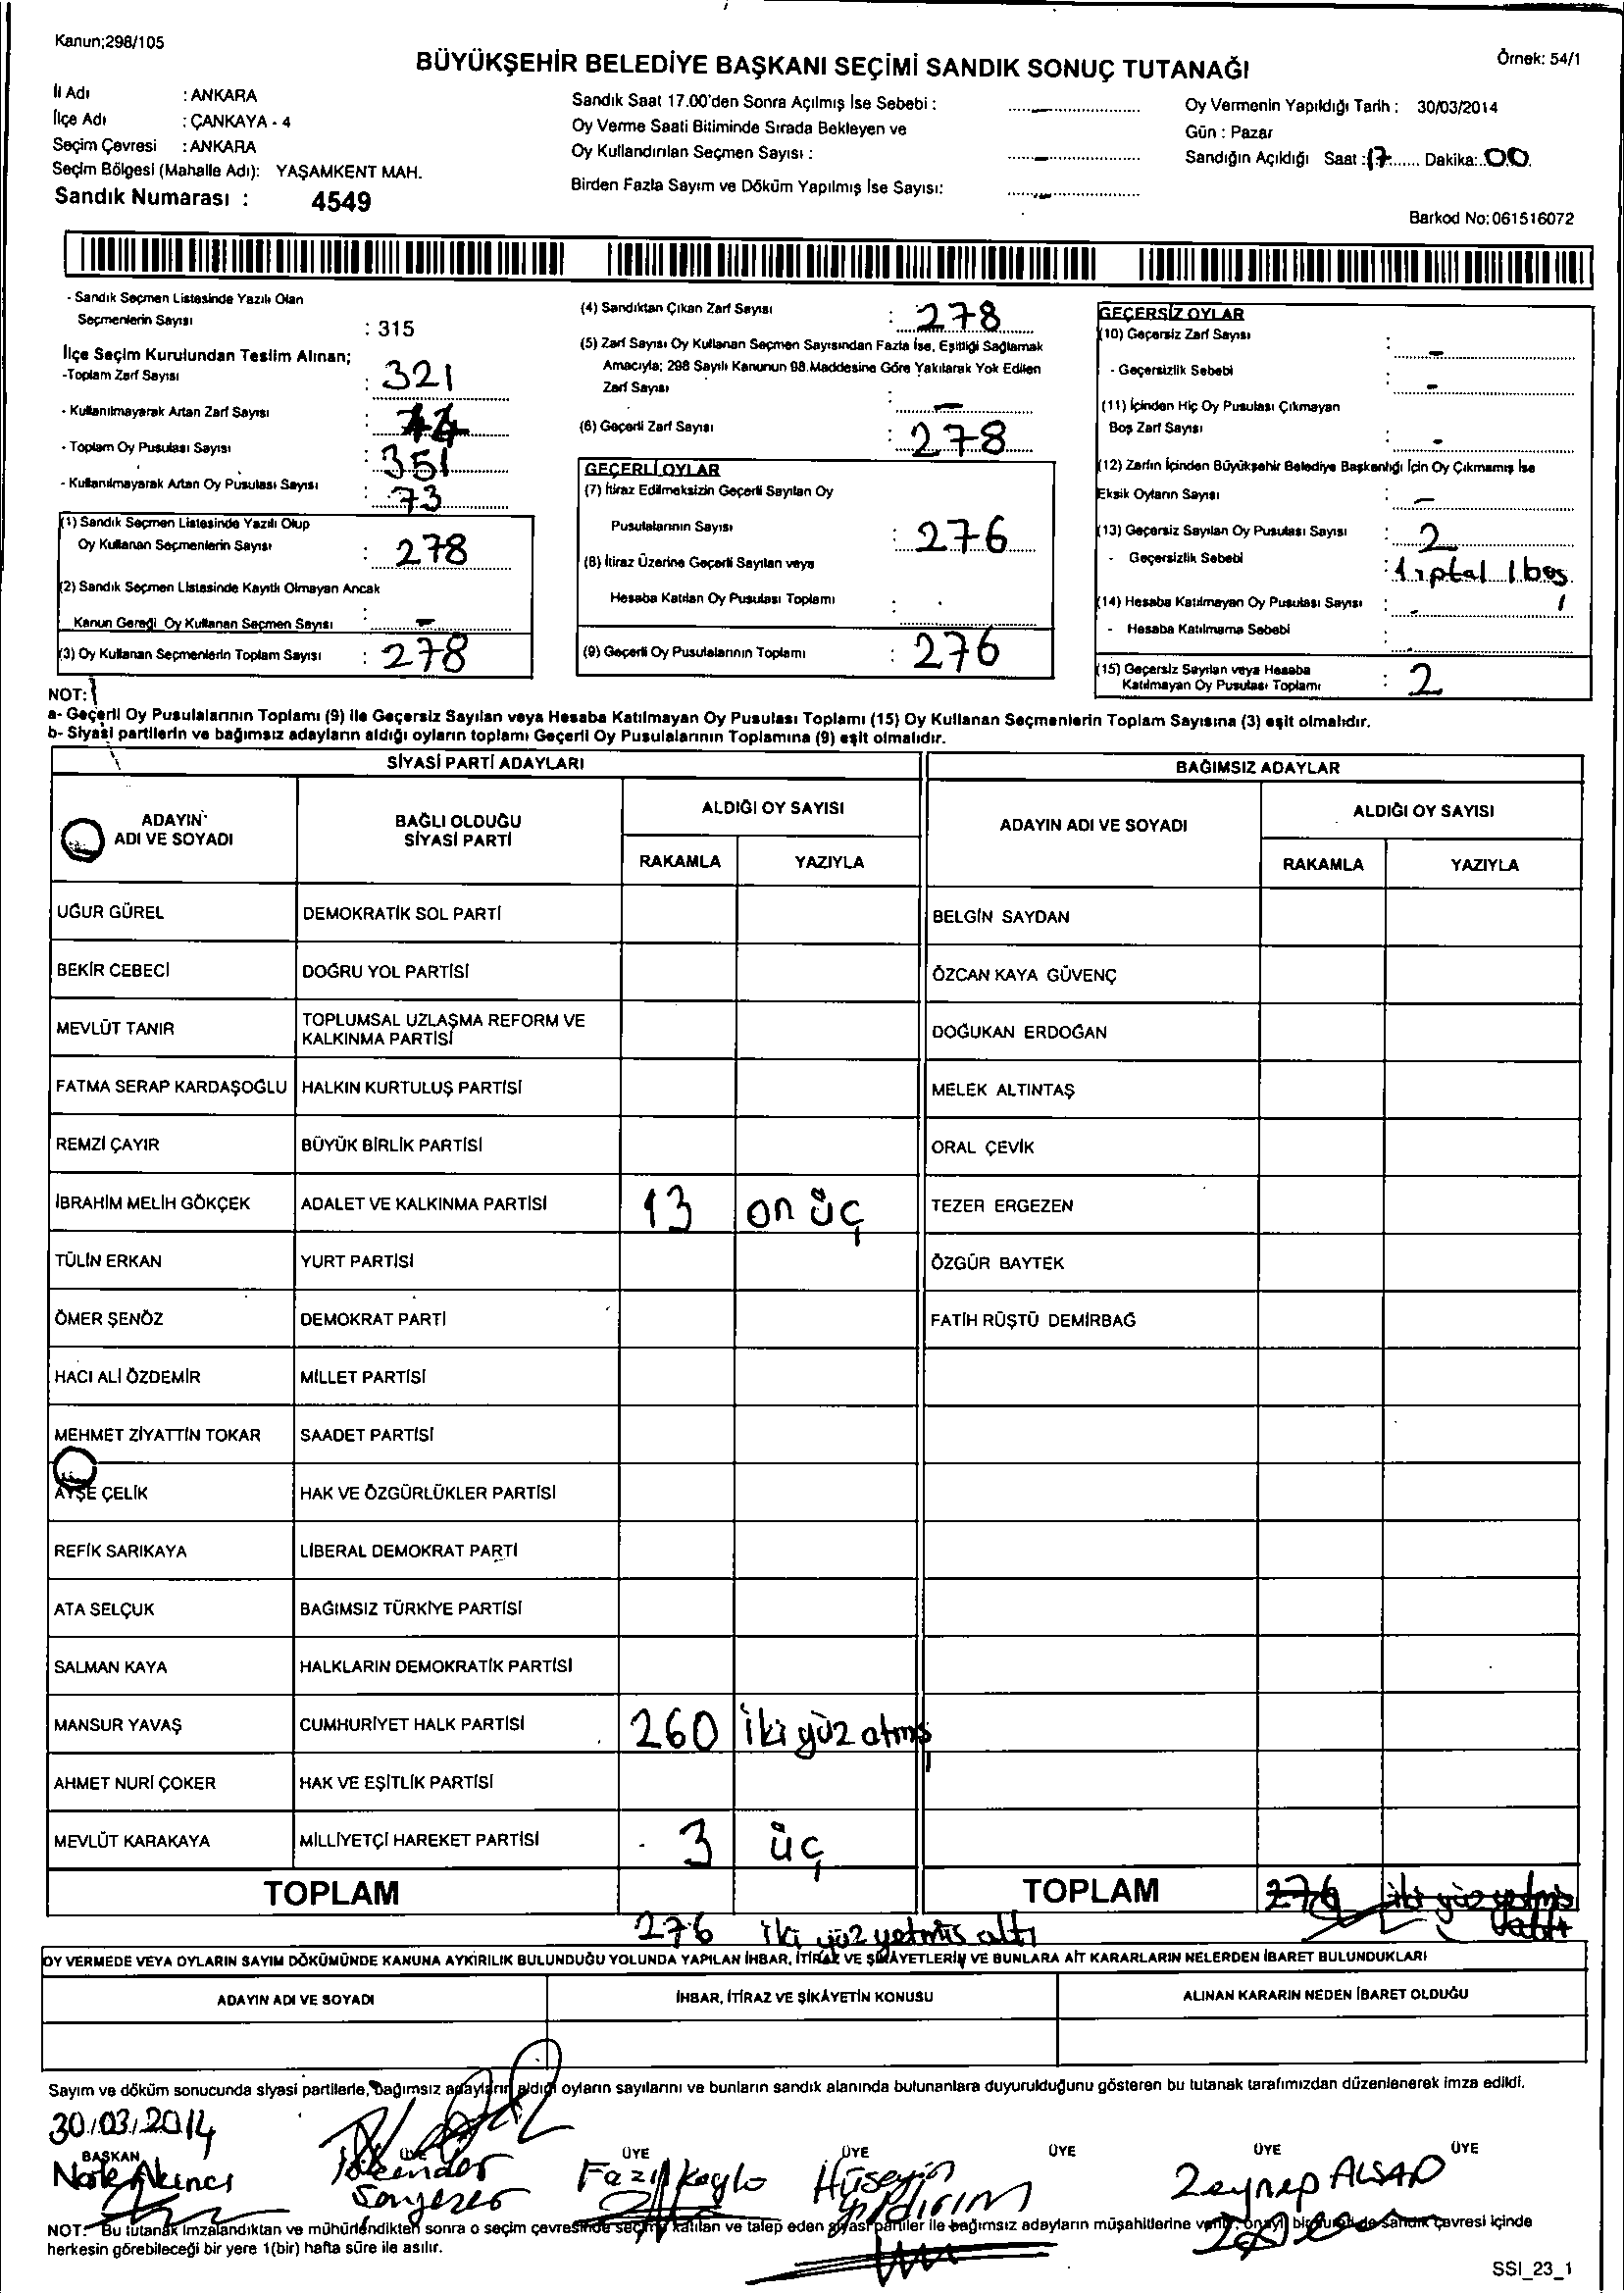 Kanun;298/105
BÜYÜKŞEHİR BELEDİYE BAŞKANI SEÇİMİ SANDIK SONUÇ TUTANAĞI
Örnek: 54/1
İl Adı : ANKARA
İlçe Adı : ÇANKAYA - 4
Seçim Çevresi : ANKARA
Seçim Bölgesi (Mahalle Adı): YAŞAMKENT MAH.
Sandık Numarası : 4549
Sandık Saat 17.00'den Sonra Açılmış İse Sebebi : –
Oy Verme Saati Bitiminde Sırada Bekleyen ve
Oy Kullandırılan Seçmen Sayısı : –
Birden Fazla Sayım ve Döküm Yapılmış İse Sayısı: –
Oy Vermenin Yapıldığı Tarih : 30/03/2014
Gün : Pazar
Sandığın Açıldığı Saat :17...... Dakika:..00.
Barkod No:061516072
- Sandık Seçmen Listesinde Yazılı Olan
Seçmenlerin Sayısı : 315
İlçe Seçim Kurulundan Teslim Alınan;
-Toplam Zarf Sayısı : 321
- Kullanılmayarak Artan Zarf Sayısı :
- Toplam Oy Pusulası Sayısı : 351
- Kullanılmayarak Artan Oy Pusulası Sayısı : 73
(1) Sandık Seçmen Listesinde Yazılı Olup
Oy Kullanan Seçmenlerin Sayısı : 278
(2) Sandık Seçmen Listesinde Kayıtlı Olmayan Ancak
Kanun Gereği Oy Kullanan Seçmen Sayısı : –
(3) Oy Kullanan Seçmenlerin Toplam Sayısı : 278
(4) Sandıktan Çıkan Zarf Sayısı : 278
(5) Zarf Sayısı Oy Kullanan Seçmen Sayısından Fazla İse, Eşitliği Sağlamak
Amacıyla; 298 Sayılı Kanunun 98.Maddesine Göre Yakılarak Yok Edilen
Zarf Sayısı : –
(6) Geçerli Zarf Sayısı : 278
GEÇERLİ OYLAR
(7) İtiraz Edilmeksizin Geçerli Sayılan Oy
Pusulalarının Sayısı : 276
(8) İtiraz Üzerine Geçerli Sayılan veya
Hesaba Katılan Oy Pusulası Toplamı : .
(9) Geçerli Oy Pusulalarının Toplamı : 276
GEÇERSİZ OYLAR
(10) Geçersiz Zarf Sayısı : –
- Geçersizlik Sebebi : –
(11) İçinden Hiç Oy Pusulası Çıkmayan
Boş Zarf Sayısı : -
(12) Zarfın İçinden Büyükşehir Belediye Başkanlığı İçin Oy Çıkmamış İse
Eksik Oyların Sayısı : –
(13) Geçersiz Sayılan Oy Pusulası Sayısı : 2
- Geçersizlik Sebebi : 1 iptal 1 boş
(14) Hesaba Katılmayan Oy Pusulası Sayısı : -
- Hesaba Katılmama Sebebi :
(15) Geçersiz Sayılan veya Hesaba
Katılmayan Oy Pusulası Toplamı : 2
NOT:
a- Geçerli Oy Pusulalarının Toplamı (9) ile Geçersiz Sayılan veya Hesaba Katılmayan Oy Pusulası Toplamı (15) Oy Kullanan Seçmenlerin Toplam Sayısına (3) eşit olmalıdır.
b- Siyasi partilerin ve bağımsız adayların aldığı oyların toplamı Geçerli Oy Pusulalarının Toplamına (9) eşit olmalıdır.
SİYASİ PARTİ ADAYLARI
BAĞIMSIZ ADAYLAR
ADAYIN ADI VE SOYADI
BAĞLI OLDUĞU SİYASİ PARTİ
ALDIĞI OY SAYISI
RAKAMLA YAZIYLA
ADAYIN ADI VE SOYADI
ALDIĞI OY SAYISI
RAKAMLA YAZIYLA
UĞUR GÜREL DEMOKRATİK SOL PARTİ BELGİN SAYDAN
BEKİR CEBECİ DOĞRU YOL PARTİSİ ÖZCAN KAYA GÜVENÇ
MEVLÜT TANIR TOPLUMSAL UZLAŞMA REFORM VE KALKINMA PARTİSİ DOĞUKAN ERDOĞAN
FATMA SERAP KARDAŞOĞLU HALKIN KURTULUŞ PARTİSİ MELEK ALTINTAŞ
REMZİ ÇAYIR BÜYÜK BİRLİK PARTİSİ ORAL ÇEVİK
İBRAHİM MELİH GÖKÇEK ADALET VE KALKINMA PARTİSİ 13 on üç TEZER ERGEZEN
TÜLİN ERKAN YURT PARTİSİ ÖZGÜR BAYTEK
ÖMER ŞENÖZ DEMOKRAT PARTİ FATİH RÜŞTÜ DEMİRBAĞ
HACI ALİ ÖZDEMİR MİLLET PARTİSİ
MEHMET ZİYATTİN TOKAR SAADET PARTİSİ
AYŞE ÇELİK HAK VE ÖZGÜRLÜKLER PARTİSİ
REFİK SARIKAYA LİBERAL DEMOKRAT PARTİ
ATA SELÇUK BAĞIMSIZ TÜRKİYE PARTİSİ
SALMAN KAYA HALKLARIN DEMOKRATİK PARTİSİ
MANSUR YAVAŞ CUMHURİYET HALK PARTİSİ 260 iki yüz atmış
AHMET NURİ ÇOKER HAK VE EŞİTLİK PARTİSİ
MEVLÜT KARAKAYA MİLLİYETÇİ HAREKET PARTİSİ 3 üç
TOPLAM TOPLAM 276 iki yüz yetmiş
276 iki yüz yetmiş altı
OY VERMEDE VEYA OYLARIN SAYIM DÖKÜMÜNDE KANUNA AYKIRILIK BULUNDUĞU YOLUNDA YAPILAN İHBAR, İTİRAZ VE ŞİKÂYETLERİN VE BUNLARA AİT KARARLARIN NELERDEN İBARET BULUNDUKLARI
ADAYIN ADI VE SOYADI İHBAR, İTİRAZ VE ŞİKÂYETİN KONUSU ALINAN KARARIN NEDEN İBARET OLDUĞU
Sayım ve döküm sonucunda siyasi partilerle, bağımsız adayların aldığı oyların sayılarını ve bunların sandık alanında bulunanlara duyurulduğunu gösteren bu tutanak tarafımızdan düzenlenerek imza edildi.
30.03.2014
BAŞKAN ÜYE ÜYE ÜYE ÜYE ÜYE ÜYE
Fazıl Hüseyin Yıldırım Zeynep
NOT: Bu tutanak imzalandıktan ve mühürlendikten sonra o seçim çevresinde seçime katılan ve talep eden siyasi partiler ile bağımsız adayların müşahitlerine verilir, onaylı bir sureti de sandık çevresi içinde
herkesin görebileceği bir yere 1(bir) hafta süre ile asılır.
SSI_23_1